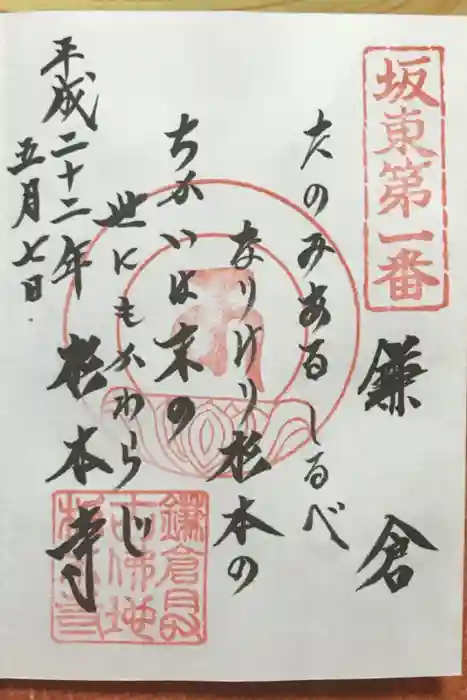 坂東第一番
鎌倉
たのみある しるべ
なりけり 杉本の
ちかいは末の
世にもかわらじ
平成二十二年
五月七日
杉本寺